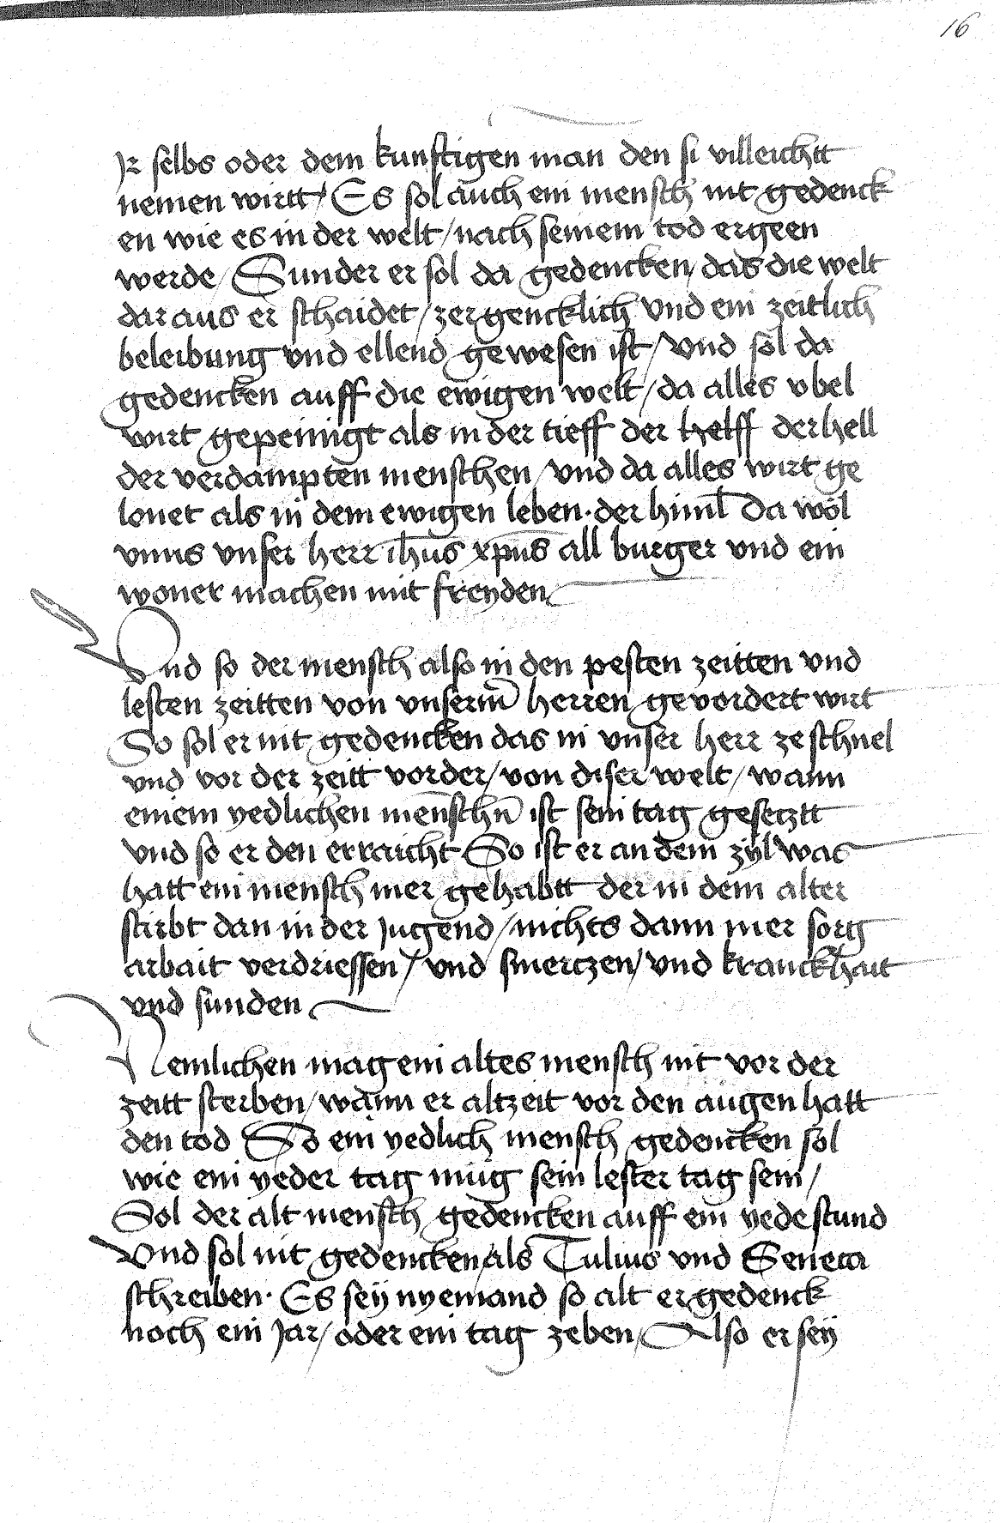 16
Jr selbs oder dem kunftigen man den si villeichtt
nemen wirtt / Es sol auch ein mensch nit gedenck
en wie es in der welt / nach seinem tod ergeen
werde / Sunder er sol da gedencken / das die welt
dar aus er schaidet / zergencklich vnd ein zeitlich
beleibung vnd ellend gewesen ist / vnd sol da
gedencken auff die ewigen welt / da alles vbel
wirt gepeinigt als in der tieff der helff der hell
der verdampten menschen / vnd da alles wirt ge
lonet als in dem ewigen leben · der himl Da wol
vnns vnser herr ihus xpus all burger vnd ein
woner machen mit freyden
Vnd so der mensch also in den pesten zeitten vnd
lesten zeitten von vnserm herren gevordert wirt
So sol er nit gedencken das in vnser herr ze schnel
vnd vor der zeitt vorder / von diser welt / wann
einem yedlichen menschn ist sein tag gesetztt
vnd so er den erraicht So ist er an dem zyl was
hatt ein mensch mer gehabtt der in dem alter
stirbt dan in der Jugend / nichts dann mer sorg
arbait verdriessen / vnd smertzen / vnd kranckhait
vnd sunden
Nemlichen mag ein altes mensch nit vor der
zeitt sterben / wann er altzeit vor den augen hatt
den tod So ein yedlich mensch gedencken sol
wie ein yeder tag mug sein lester tag sein /
Sol der alt mensch gedencken auff ein yede stund
Vnd sol nit gedencken / als Tulius vnd Seneca
schreiben · Es sey nyemand so alt er gedenck
noch ein Jar / oder ein tag zeben / Also er sey